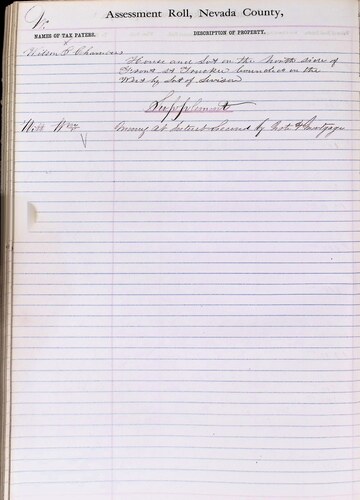 Assessment Roll, Nevada County,
NAMES OF TAX PAYERS. DESCRIPTION OF PROPERTY.
House and Lot on the North side of
Front St Truckee bounded on the
West by Lot of
Supplement
Money at Interest Secured by Note & Mortgage